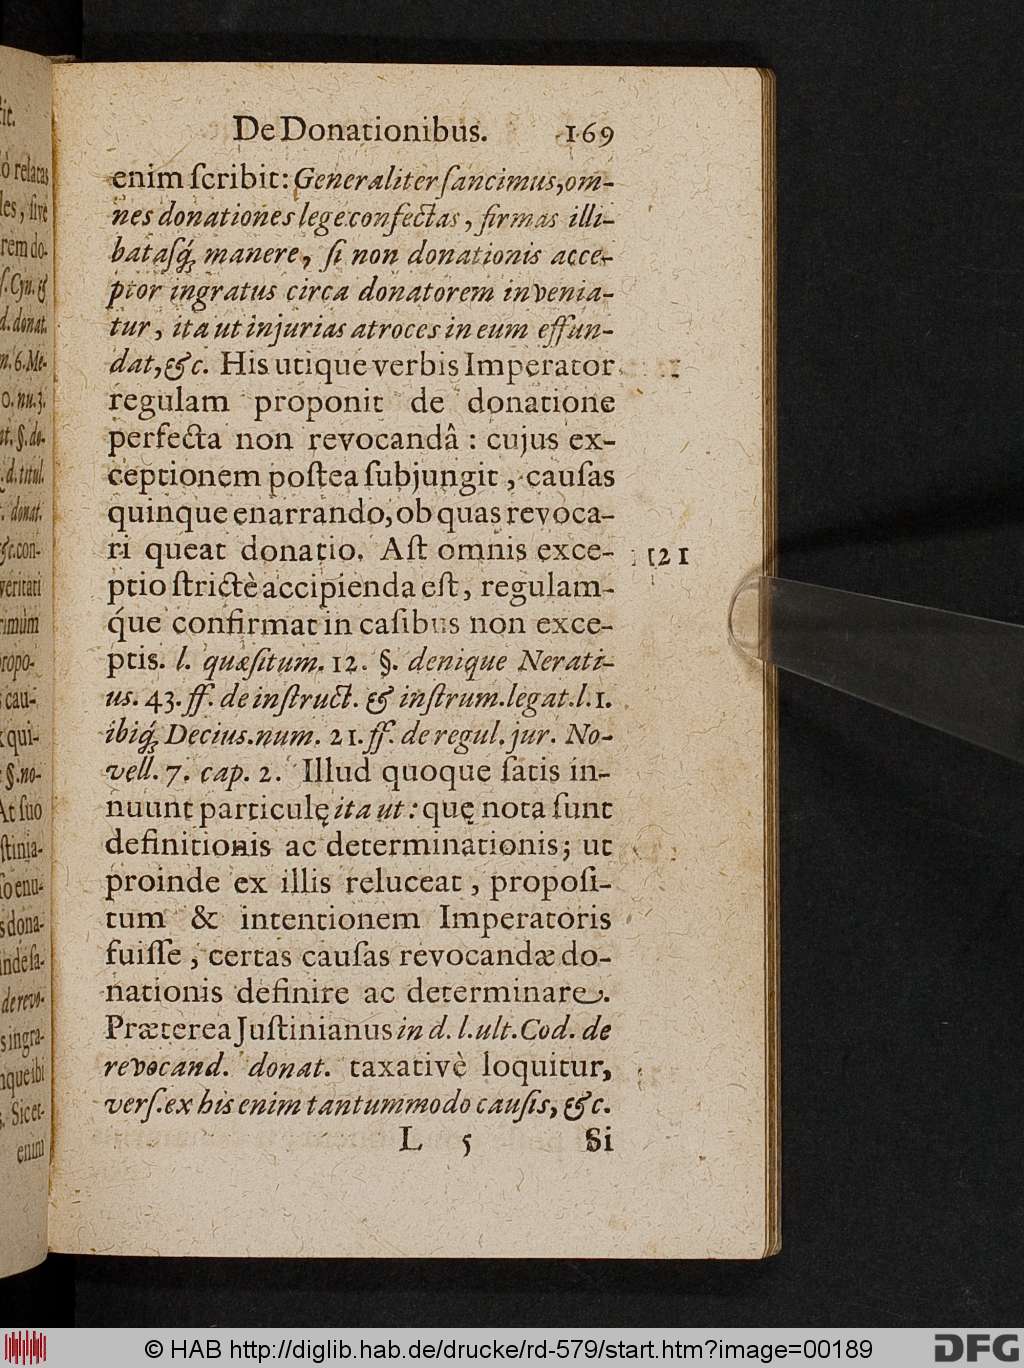 De Donationibus. 169
enim ſcribit: Generaliter ſancimus, om-
nes donationes lege confectas, firmas illi-
bataſq́; manere, ſi non donationis acce-
ptor ingratus circa donatorem invenia-
tur, ita ut injurias atroces in eum effun-
dat, &c. His utique verbis Imperator
regulam proponit de donatione
perfecta non revocandâ: cujus ex-
ceptionem poſtea ſubjungit, cauſas
quinque enarrando, ob quas revoca-
ri queat donatio. Aſt omnis exce-
121
ptio ſtrictè accipienda eſt, regulam-
q́ue confirmat in caſibus non exce-
ptis. l. quæſitum. 12. §. denique Nerati-
us. 43. ff. de inſtruct. & inſtrum. legat. l. 1.
ibiq́; Decius. num. 21. ff. de regul. jur. No-
vell. 7. cap. 2. Illud quoque ſatis in-
nuunt particulę ita ut: quę nota ſunt
definitionis ac determinationis; ut
proinde ex illis reluceat, propoſi-
tum & intentionem Imperatoris
fuiſſe, certas cauſas revocandæ do-
nationis definire ac determinare.
Præterea Juſtinianus in d. l. ult. Cod. de
revocand. donat. taxativè loquitur,
verſ. ex his enim tantummodo cauſis, &c.
L 5 Si
© HAB http://diglib.hab.de/drucke/rd-579/start.htm?image=00189
DFG